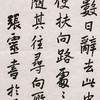 數日辭去此
便扶向路處〻
隨其往尋向所
張靈書